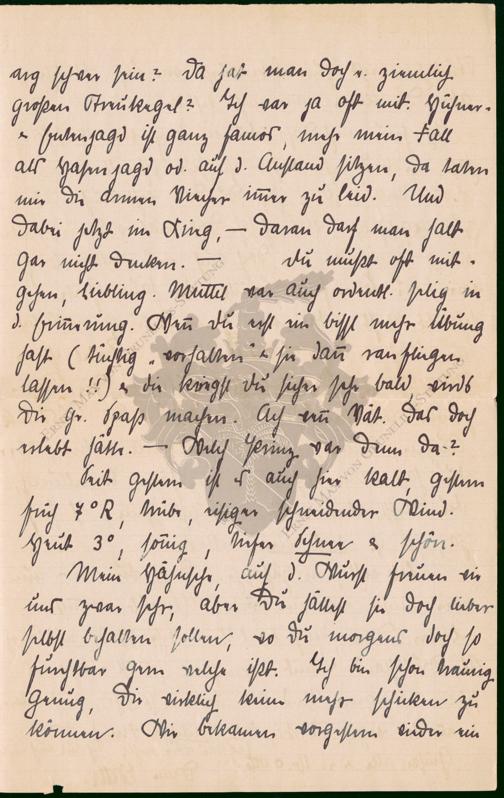 arg schwer sein? Da hat man doch e. ziemlich
großen Streukegel? Ich war ja oft mit. Hühner-
& Entenjagd ist ganz famos, mehr mein Fall
als Hasenjagd od. auf d. Anstand sitzen, da taten
mir die armen Viecher im̄er zu leid. Und
dabei jetzt im Krieg, — daran darf man halt
gar nicht denken. — Du mußt oft mit-
gehen, Liebling. Muttel war auch ordentl. selig in
d. Erin̄erung. Wen̄ Du erst ein bissl mehr Übung
hast (tüchtig „vorhalten" & sie dan̄ ranfliegen
lassen!!) & die kriegst Du sicher sehr bald wirds
Dir gr. Spaß machen. Ach wen̄ Vat. das doch
erlebt hätte. — Welch Prinz war denn da?
Seit gestern ist es auch hier kalt, gestern
früh 7° R, trübe, eisiger schneidender Wind.
Heut 3°, son̄ig, tiefer Schnee & schön.
Mein Hähnsche, auf d. Wurst freuen wir
uns zwar sehr, aber Du hättest sie doch lieber
selbst behalten sollen, wo Du morgens doch so
furchtbar gern welche ißt. Ich bin schon traurig
genug, Dir wirklich keine mehr schicken zu
können. Wir bekamen vorgestern wieder ein